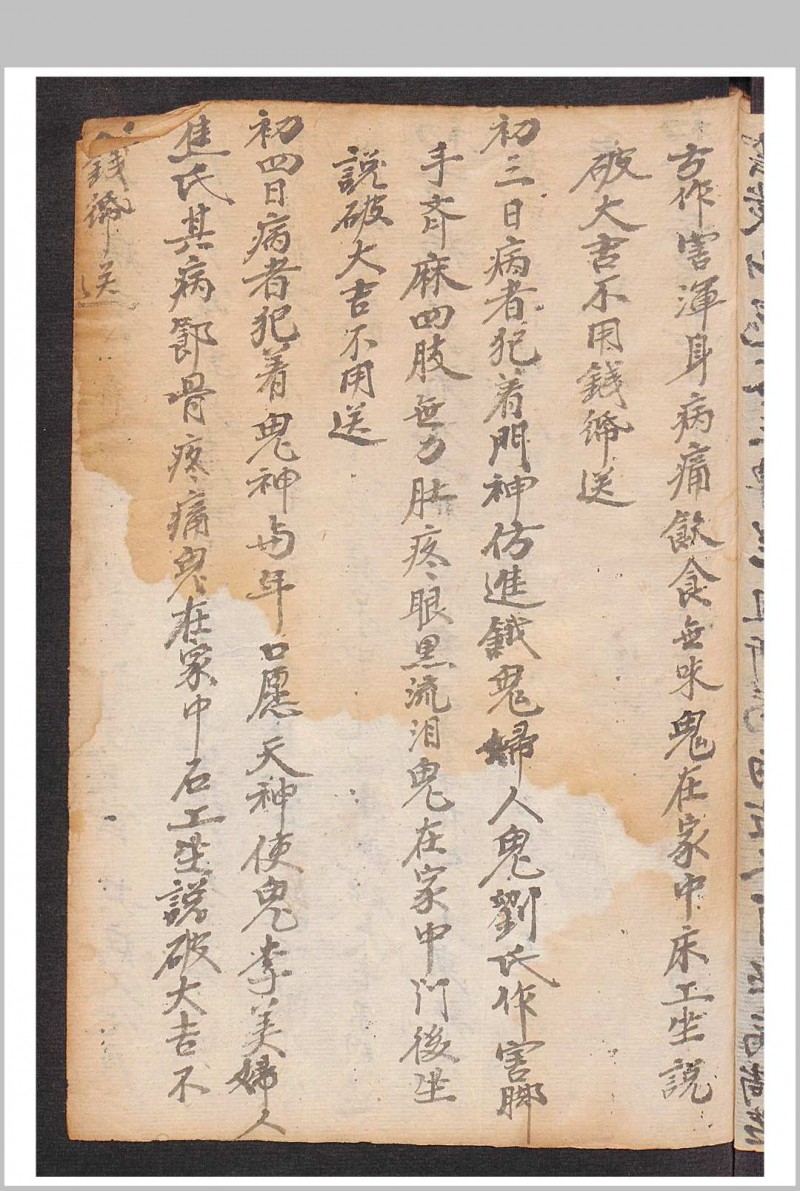 方作害渾身病痛飲食無味鬼在家中床工坐說
破大吉不用錢𢁥送
初三日病者犯着門神仿進餓鬼婦人鬼劉氏作害脚
手斉麻四肢無力肚疼眼黑流泪鬼在家中门後坐
說破大吉不用送
初四日病者犯着鬼神為年口愿天神使鬼李美婦人
焦氏其病節骨疼痛鬼在家中石工坐說破大吉不
錢𢁥送